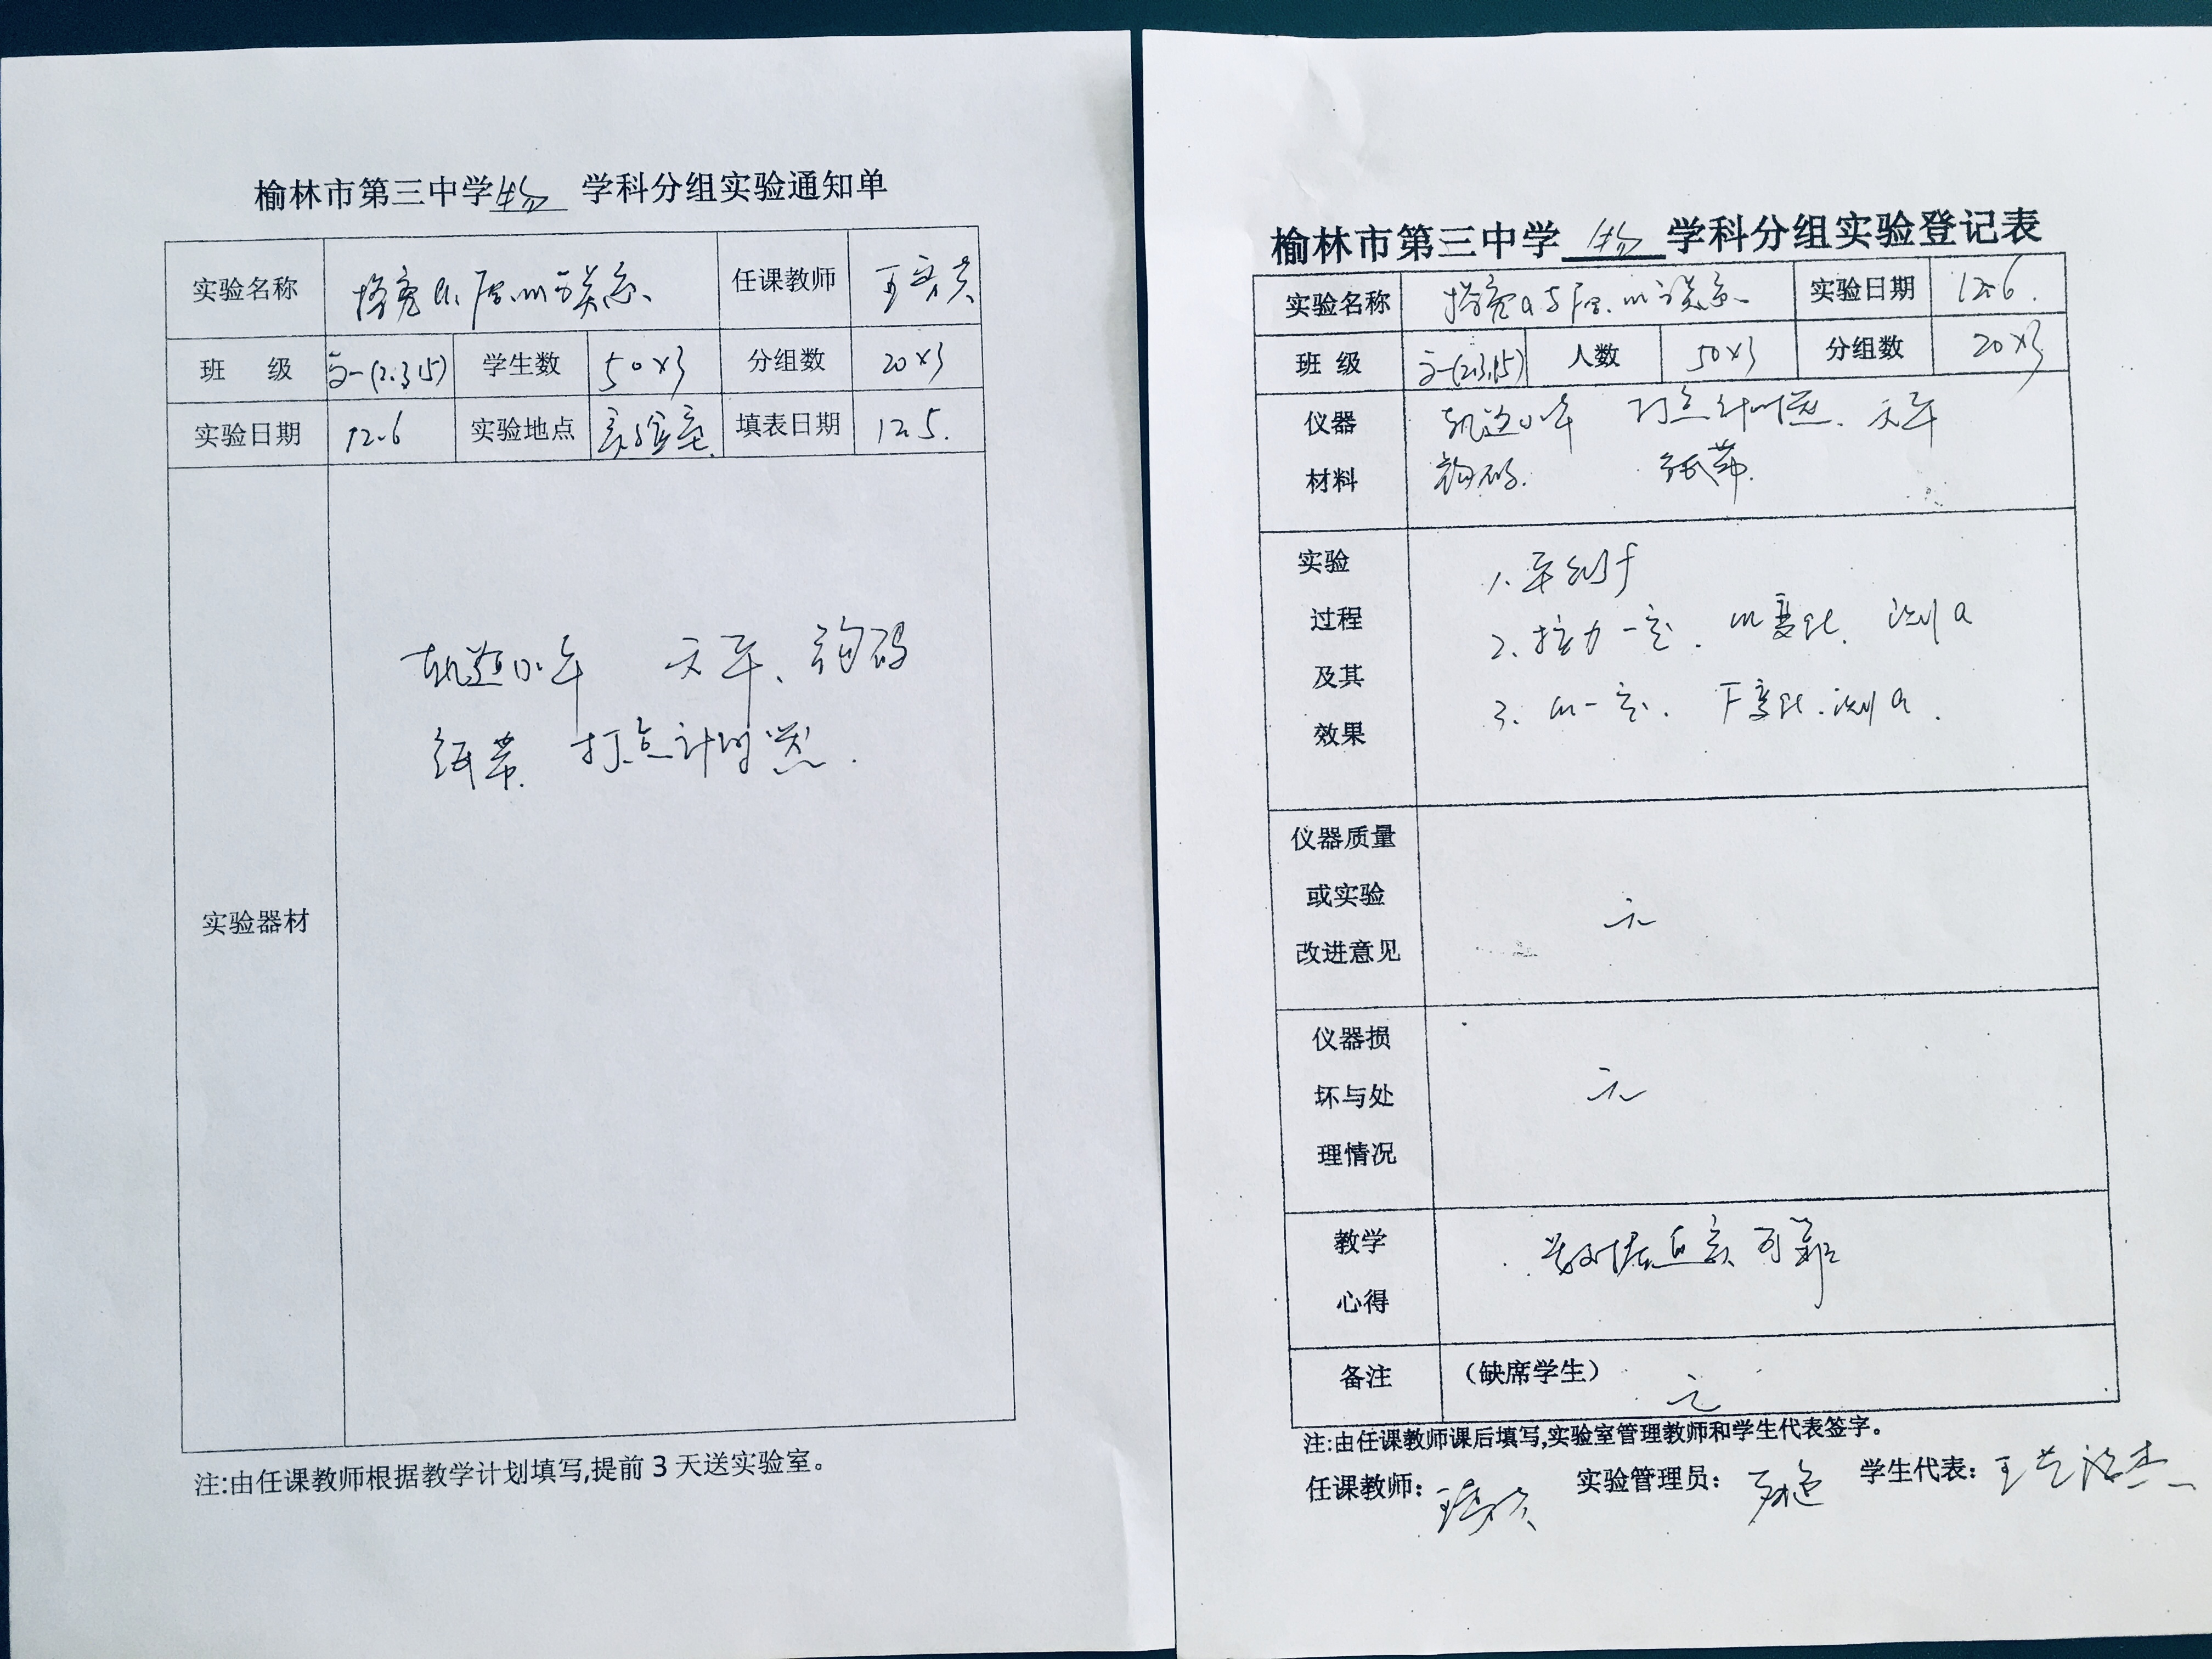 榆林市第三中学 物 学科分组实验通知单
实验名称 探究a与F合.m的关系、 任课教师
班 级 高一(2.3.15) 学生数 50×3 分组数 20×3
实验日期 12.6 实验地点 实验室. 填表日期 12.5.
实验器材
轨道小车 天平、钩码
纸带. 打点计时器.
注:由任课教师根据教学计划填写,提前 3 天送实验室。
榆林市第三中学 物 学科分组实验登记表
实验名称 探究a与F合.m的关系 实验日期 12.6.
班 级 高一(2.3.15) 人数 50×3 分组数 20×3
仪器 轨道小车 打点计时器. 天平
材料 钩码. 纸带.
实验
过程
及其
效果
1. 平衡f
2. 拉力一定. m变化. 测a
3. m一定. F变化.测a.
仪器质量
或实验
改进意见
无
仪器损
坏与处
理情况
无
教学
心得
数据真实可靠
备注 (缺席学生)
无
注:由任课教师课后填写,实验室管理教师和学生代表签字。
任课教师: 实验管理员: 学生代表: